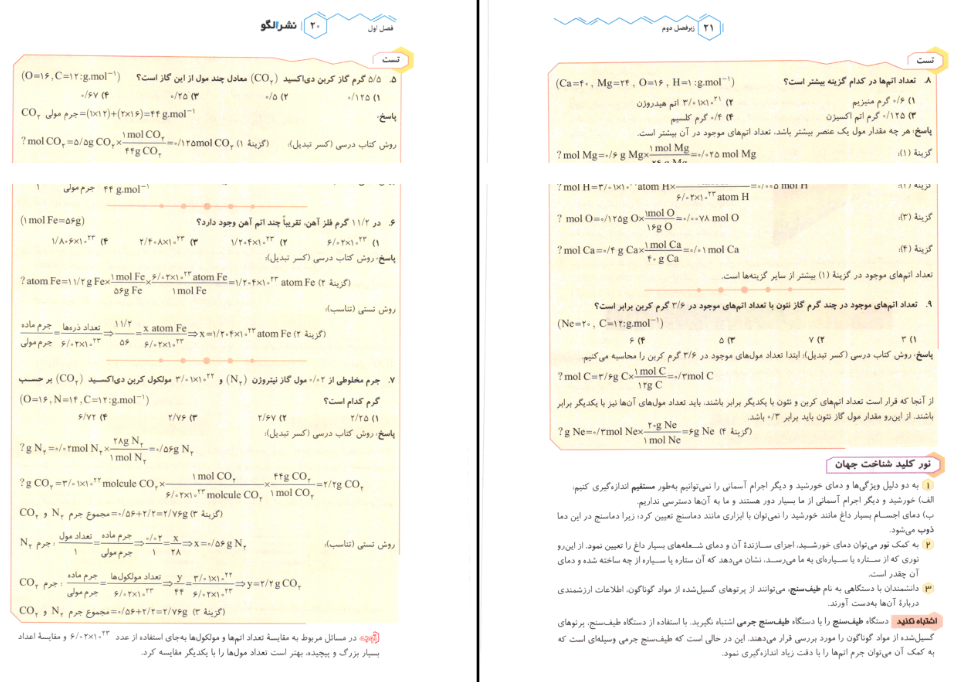 فصل اول
۲۰
نشر الگو
تست
۵. ۵/۵ گرم گاز کربن دی‌اکسید (CO₂) معادل چند مول از این گاز است؟ (O=۱۶, C=۱۲:g.mol⁻¹)
۱) ۰/۱۲۵ ۲) ۰/۵ ۳) ۰/۲۵ ۴) ۰/۶۷
پاسخ: CO₂ جرم مولی=(۱×۱۲)+(۲×۱۶)=۴۴ g.mol⁻¹
روش کتاب درسی (کسر تبدیل): (گزینهٔ ۱) ? mol CO₂=۵/۵g CO₂×۱ mol CO₂/۴۴g CO₂=۰/۱۲۵mol CO₂
۱ جرم مولی ۴۴ g.mol⁻¹
۶. در ۱۱/۲ گرم فلز آهن، تقریباً چند اتم آهن وجود دارد؟ (۱ mol Fe=۵۶g)
۱) ۶/۰۲×۱۰²³ ۲) ۱/۲۰۴×۱۰²³ ۳) ۲/۴۰۸×۱۰²³ ۴) ۱/۸۰۶×۱۰²³
پاسخ: روش کتاب درسی (کسر تبدیل):
? atom Fe=۱۱/۲g Fe×۱ mol Fe/۵۶g Fe×۶/۰۲×۱۰²³ atom Fe/۱ mol Fe=۱/۲۰۴×۱۰²³ atom Fe (گزینهٔ ۲)
روش تستی (تناسب):
جرم ماده/جرم مولی=تعداد ذره‌ها/۶/۰۲×۱۰²³⇒۱۱/۲/۵۶=x atom Fe/۶/۰۲×۱۰²³⇒x=۱/۲۰۴×۱۰²³ atom Fe (گزینهٔ ۲)
۷. جرم مخلوطی از ۰/۰۲ مول گاز نیتروژن (N₂) و ۳/۰۱×۱۰²² مولکول کربن دی‌اکسید (CO₂) بر حسب
گرم کدام است؟ (O=۱۶, N=۱۴, C=۱۲:g.mol⁻¹)
۱) ۲/۲۵ ۲) ۲/۶۷ ۳) ۲/۷۶ ۴) ۶/۷۲
پاسخ: روش کتاب درسی (کسر تبدیل):
? g N₂=۰/۰۲mol N₂×۲۸g N₂/۱ mol N₂=۰/۵۶g N₂
? g CO₂=۳/۰۱×۱۰²² molcule CO₂×۱ mol CO₂/۶/۰۲×۱۰²³ molcule CO₂×۴۴g CO₂/۱ mol CO₂=۲/۲g CO₂
(گزینهٔ ۳) ۰/۵۶+۲/۲=۲/۷۶g=مجموع جرم N₂ و CO₂
روش تستی (تناسب): جرم N₂: تعداد مول/۱=جرم ماده/جرم مولی⇒۰/۰۲/۱=x/۲۸⇒x=۰/۵۶g N₂
جرم CO₂: جرم ماده/جرم مولی=تعداد مولکول‌ها/۶/۰۲×۱۰²³⇒y/۴۴=۳/۰۱×۱۰²²/۶/۰۲×۱۰²³⇒y=۲/۲g CO₂
(گزینهٔ ۳) ۰/۵۶+۲/۲=۲/۷۶g=مجموع جرم N₂ و CO₂
توجه در مسائل مربوط به مقایسهٔ تعداد اتم‌ها و مولکول‌ها به‌جای استفاده از عدد ۶/۰۲×۱۰²³ و مقایسهٔ اعداد
بسیار بزرگ و پیچیده، بهتر است تعداد مول‌ها را با یکدیگر مقایسه کرد.
۲۱
زیرفصل دوم
تست
۸. تعداد اتم‌ها در کدام گزینه بیشتر است؟ (Ca=۴۰, Mg=۲۴, O=۱۶, H=۱:g.mol⁻¹)
۱) ۰/۶ گرم منیزیم ۲) ۳/۰۱×۱۰²¹ اتم هیدروژن
۳) ۰/۱۲۵ گرم اتم اکسیژن ۴) ۰/۴ گرم کلسیم
پاسخ: هر چه مقدار مول یک عنصر بیشتر باشد، تعداد اتم‌های موجود در آن بیشتر است.
گزینهٔ (۱): ? mol Mg=۰/۶ g Mg×۱ mol Mg/۲۴ g Mg=۰/۰۲۵ mol Mg
گزینهٔ (۲): ? mol H=۳/۰۱×۱۰ atom H×/۶/۰۲×۱۰²³ atom H=۰/۰۰۵ mol H
گزینهٔ (۳): ? mol O=۰/۱۲۵g O×۱mol O/۱۶g O=۰/۰۰۷۸ mol O
گزینهٔ (۴): ? mol Ca=۰/۴ g Ca×۱ mol Ca/۴۰ g Ca=۰/۰۱ mol Ca
تعداد اتم‌های موجود در گزینهٔ (۱) بیشتر از سایر گزینه‌ها است.
۹. تعداد اتم‌های موجود در چند گرم گاز نئون با تعداد اتم‌های موجود در ۳/۶ گرم کربن برابر است؟
(Ne=۲۰, C=۱۲:g.mol⁻¹)
۱) ۳ ۲) ۷ ۳) ۵ ۴) ۶
پاسخ: روش کتاب درسی (کسر تبدیل): ابتدا تعداد مول‌های موجود در ۳/۶ گرم کربن را محاسبه می‌کنیم.
? mol C=۳/۶g C×۱ mol C/۱۲g C=۰/۳mol C
از آنجا که قرار است تعداد اتم‌های کربن و نئون با یکدیگر برابر باشند، باید تعداد مول‌های آن‌ها نیز با یکدیگر برابر
باشند. از این‌رو مقدار مول گاز نئون باید برابر ۰/۳ باشد.
? g Ne=۰/۳mol Ne×۲۰g Ne/۱ mol Ne=۶g Ne (گزینهٔ ۴)
نور کلید شناخت جهان
۱ به دو دلیل ویژگی‌ها و دمای خورشید و دیگر اجرام آسمانی را نمی‌توانیم به‌طور مستقیم اندازه‌گیری کنیم:
الف) خورشید و دیگر اجرام آسمانی از ما بسیار دور هستند و ما به آن‌ها دسترسی نداریم.
ب) دمای اجسام بسیار داغ مانند خورشید را نمی‌توان با ابزاری مانند دماسنج تعیین کرد؛ زیرا دماسنج در این دما
ذوب می‌شود.
۲ به کمک نور می‌توان دمای خورشید، اجزای سازندهٔ آن و دمای شعله‌های بسیار داغ را تعیین نمود. از این‌رو
نوری که از ستاره یا سیاره‌ای به ما می‌رسد، نشان می‌دهد که آن ستاره یا سیاره از چه ساخته شده و دمای
آن چقدر است.
۳ دانشمندان با دستگاهی به نام طیف‌سنج، می‌توانند از پرتوهای گسیل‌شده از مواد گوناگون، اطلاعات ارزشمندی
دربارهٔ آن‌ها به‌دست آورند.
اشتباه نکنید دستگاه طیف‌سنج را با دستگاه طیف‌سنج جرمی اشتباه نگیرید. با استفاده از دستگاه طیف‌سنج، پرتوهای
گسیل‌شده از مواد گوناگون را مورد بررسی قرار می‌دهند. این در حالی است که طیف‌سنج جرمی وسیله‌ای است که
به کمک آن می‌توان جرم اتم‌ها را با دقت زیاد اندازه‌گیری نمود.